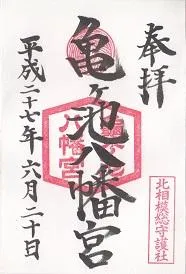 奉拝
亀ヶ池八幡宮
平成二十七年六月二十日
北相模総守護社